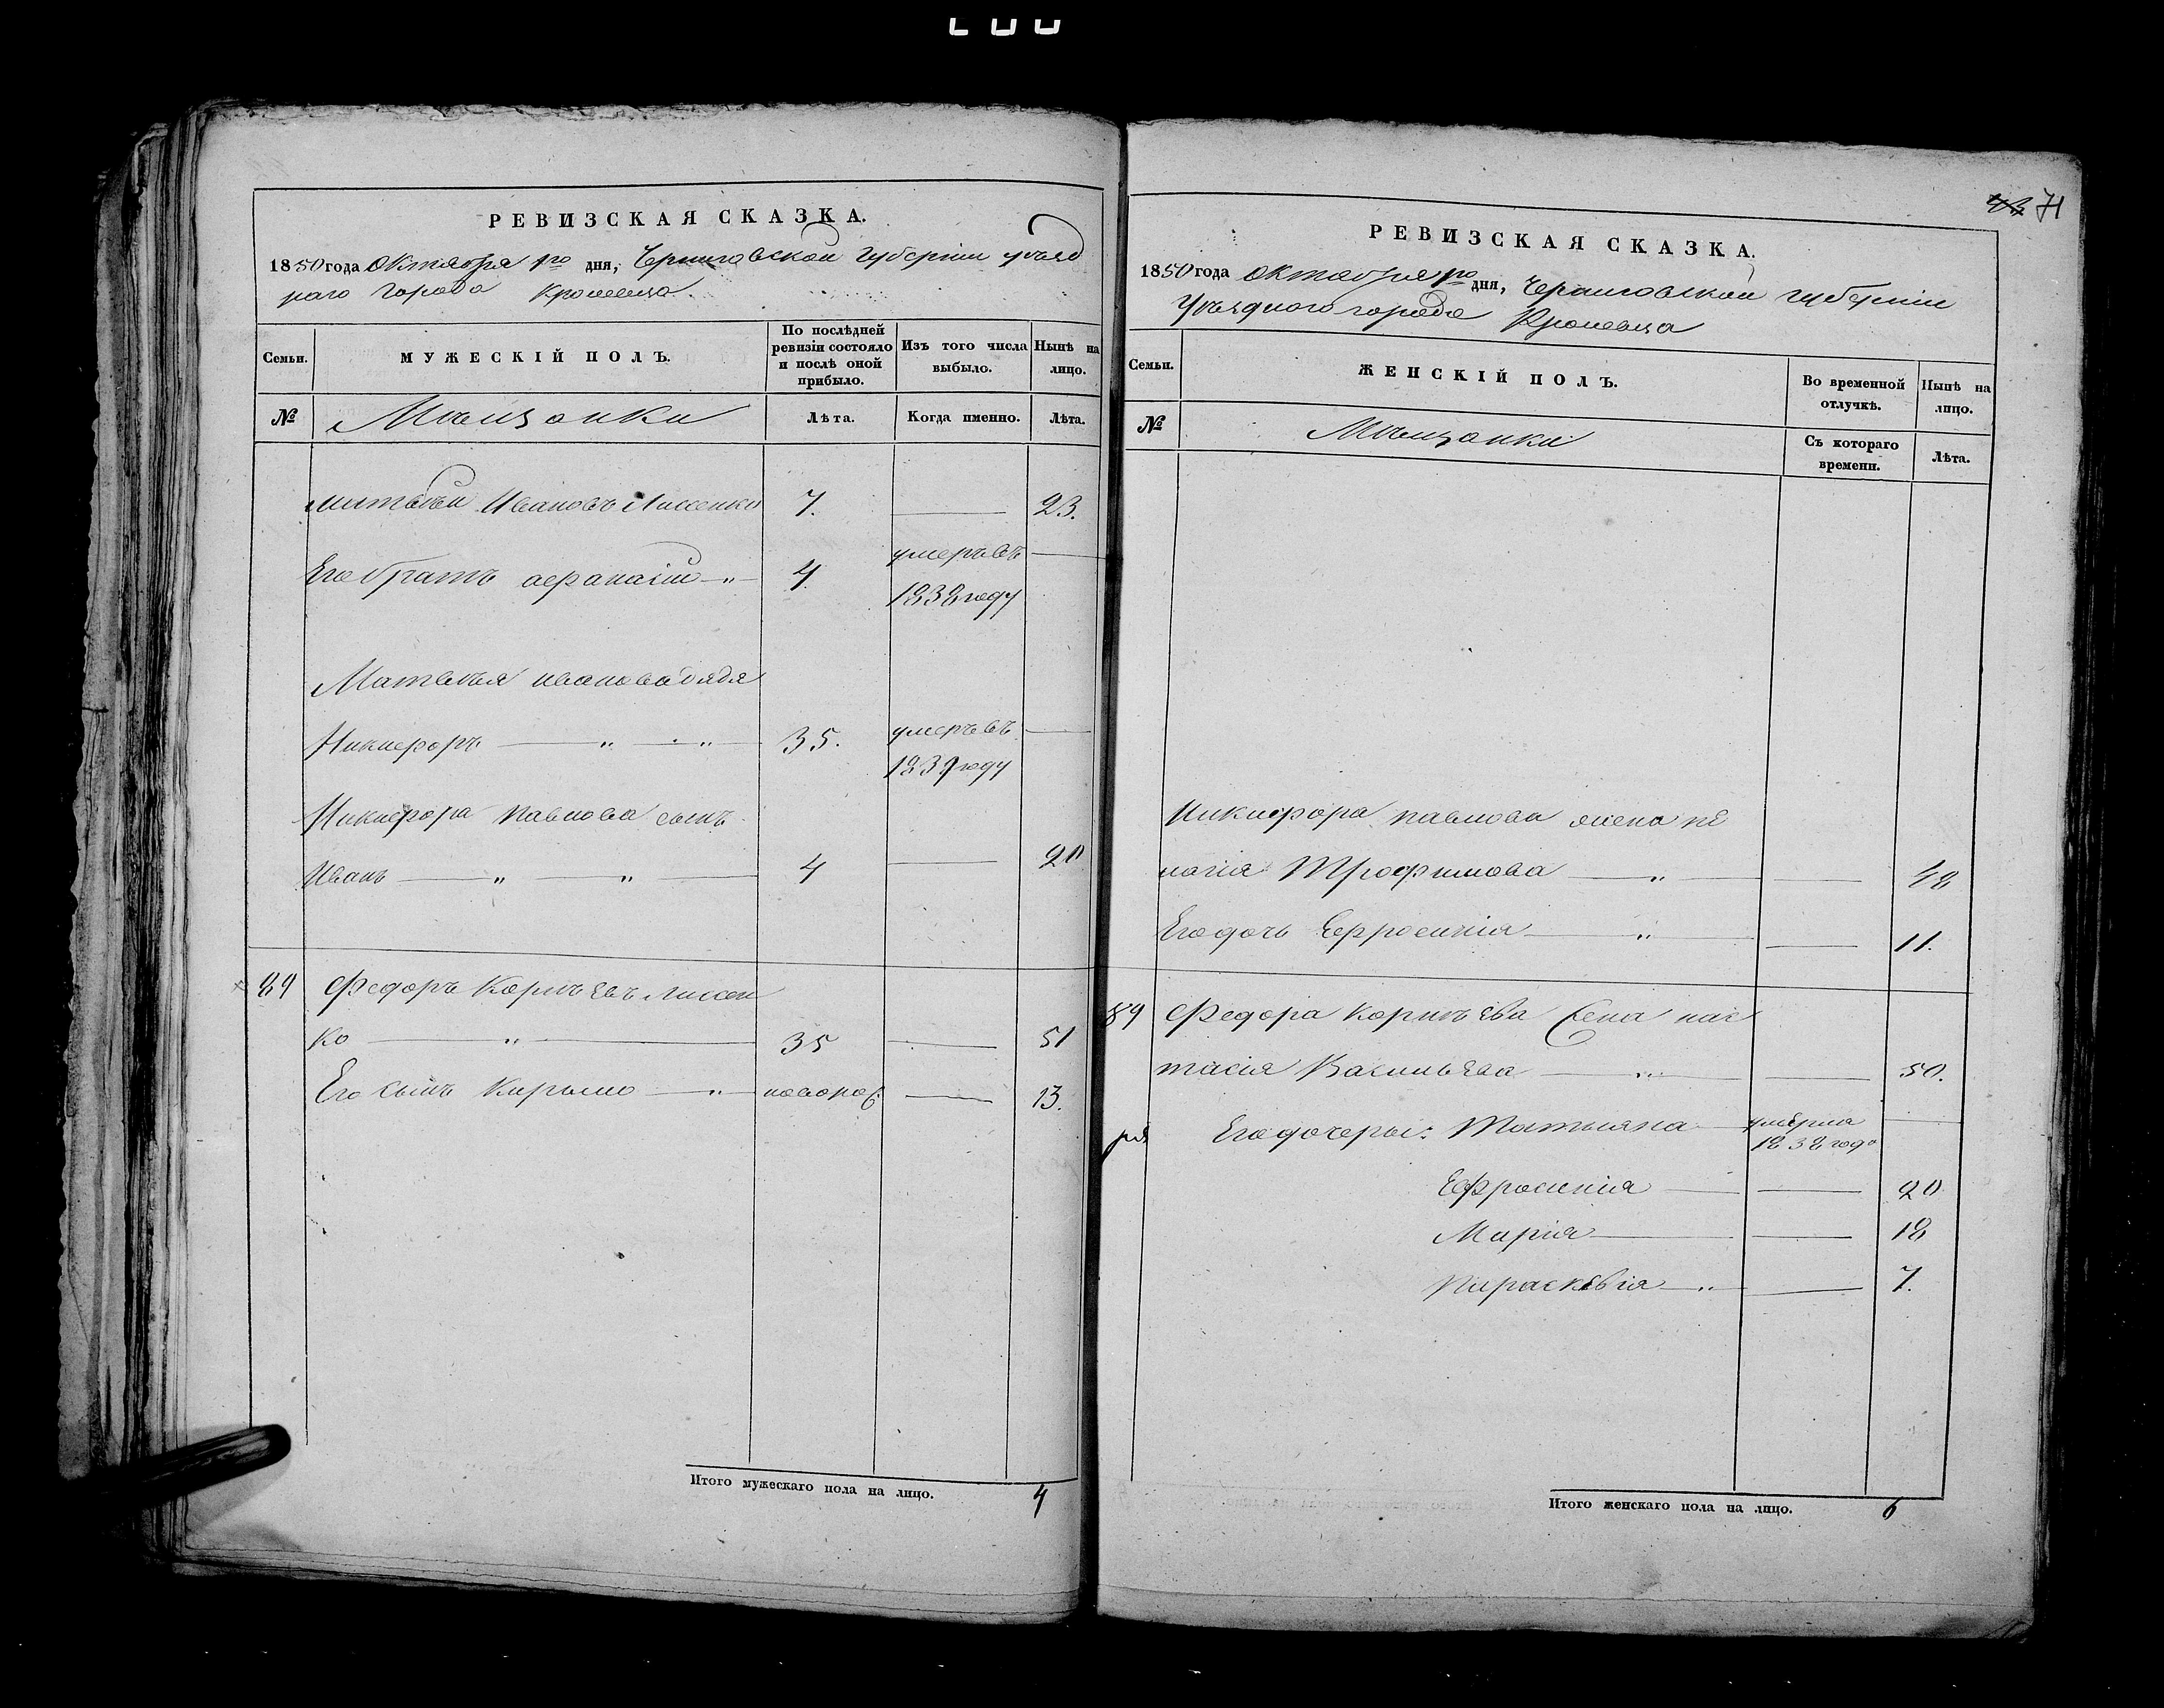 71
РЕВИЗСКАЯ СКАЗКА.
1850 года Октября 1го дня, Черниговской Губернии уѣзд
наго города Кролевца
Семьи. МУЖЕСКІЙ ПОЛЪ. По послѣдней ревизіи состояло и послѣ оной прибыло. Изъ того числа выбыло. Нынѣ на лицо.
№ Мѣщанки Лѣта. Когда именно. Лѣта.
Матвѣй Ивановъ Лисенко 7. 23.
Его братъ афанасій 4. умеръ въ
1838 году
Матвѣя иванова дядя
Никифоръ 35. умеръ въ
1839 году
Никифора павлова сынъ
Иванъ 4 20
89 Федоръ Корнѣевъ Лисен
ко 35 51
Его сынъ Кирыло новорож: 13.
Итого мужескаго пола на лицо. 4
РЕВИЗСКАЯ СКАЗКА.
1850 года октября 1го дня, Черниговской губерніи
Уѣзднаго города Кролевца
Семьи. ЖЕНСКІЙ ПОЛЪ. Во временной отлучкѣ. Нынѣ на лицо.
№ Мѣщанки Съ котораго времени. Лѣта.
Никифора павлова жена пе
лагія Трофимова 48
Его дочь Ефросинія 11.
89 Федора корнѣева жена нас
тасія Васильева 50.
Его дочеры: Татьяна умерла
1838 года
Ефросинія 20
Марія 18
Параскевія 7.
Итого женскаго пола на лицо. 6